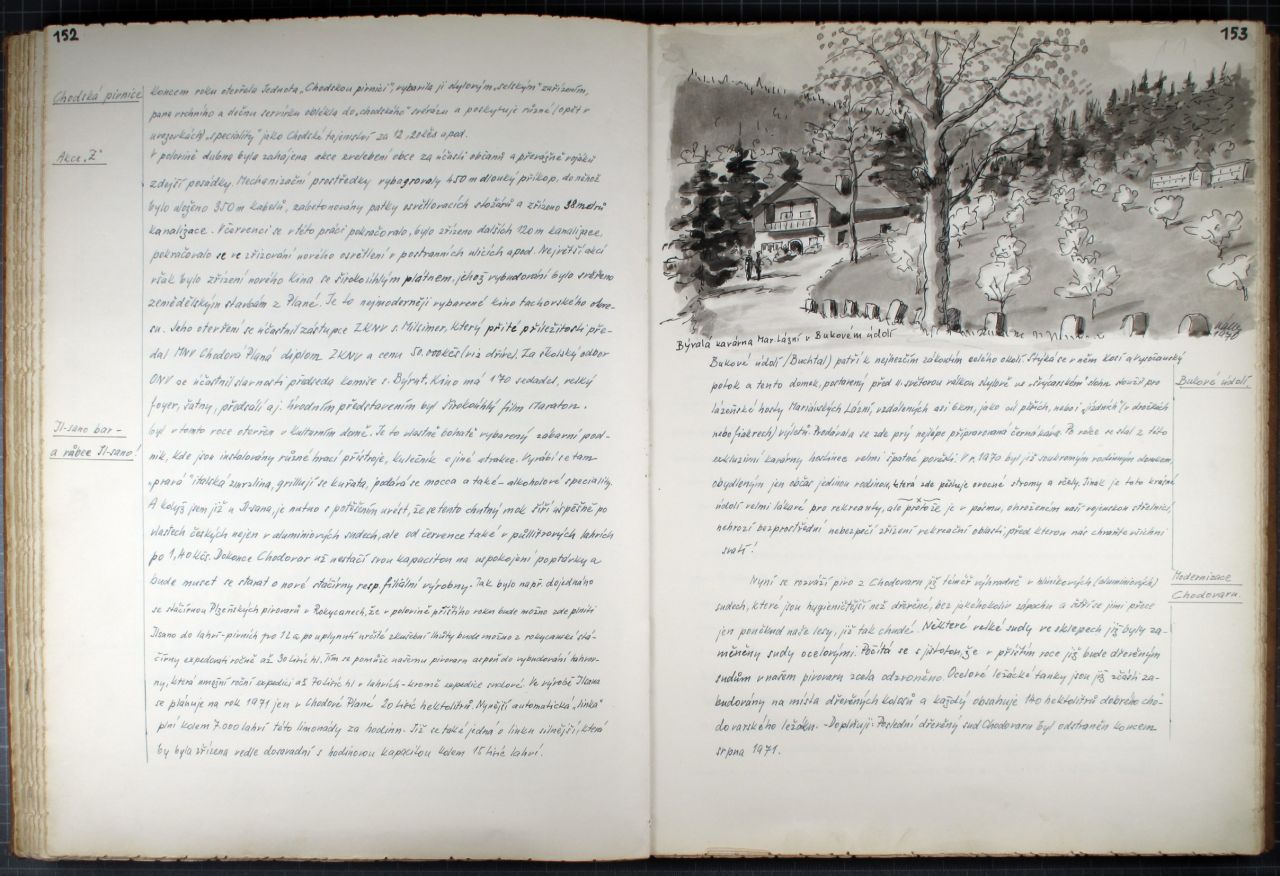 152
Chodská pivnice
Koncem roku otevřela Jednota „Chodskou pivnici", vybavila ji stylovým „selským" zařízením,
pana vrchního a dečnu servírku oblékla do „chodského" svérázu a poskytuje různé (opět v
uvozovkách) „speciality" jako Chodské tajemství za 12,20 kčs apod.
Akce „Z"
V polovině dubna byla zahájena akce zvelebení obce za účasti občanů a převážně vojáků
zdejší posádky. Mechanizační prostředky vybagrovaly 450 m dlouký příkop, do něhož
bylo uloženo 350 m kabelů, zabetonovány patky osvětlovacích stožárů a zřízeno 38 metrů
kanalizace. V červenci se v této práci pokračovalo, bylo zřízeno dalších 120 m kanalizace,
pokračovalo se ve zřizování nového osvětlení v postranních ulicích apod. Největší akcí
však bylo zřízení nového kina se širokoúhlým plátnem, jehož vybudování bylo svěřeno
zemědělským stavbám z Plané. Je to nejmoderněji vybavené kino tachovského okre-
su. Jeho otevření se účastnil zástupce ZKNV s. Milsimer, který při té příležitosti pře-
dal MNV Chodová Planá diplom ZKNV a cenu 50.000 kčs (viz dříve). Za školský odbor
ONV se účastnil slavnosti předseda komise s. Býrut. Kino má 170 sedadel, velký
foyer, šatny, předsálí aj. Úvodním představením byl širokoúhlý film Maraton.
Il-sano bar -
a vůbec Il-sano!
byl v tomto roce otevřen v kulturním domě. Je to vlastně bohatě vybavený zábavní pod-
nik, kde jsou instalovány různé hrací přístroje, kulečník a jiné atrakce. Vyrábí se tam
„pravá" italská zmrzlina, grillují se kuřata, podává se mocca a také - alkoholové speciality.
A když jsem již u Il-sana, je nutno s potěšením uvést, že se tento chutný mok šíří úspěšně po
vlastech českých nejen v aluminiových sudech, ale od července také v půllitrových lahvích
po 1,40 kčs. Dokonce Chodovar už nestačí svou kapacitou na uspokojení poptávky a
bude muset se starat o nové stáčírny resp. filiální výrobny. Tak bylo např. dojednáno
se stáčírnou Plzeňských pivovarů v Rokycanech, že v polovině příštího roku bude možno zde plniti
Ilsano do lahví - pivních pro 12° a po uplynutí určité zkušební lhůty bude možno z rokycanské stá-
čírny expedovati ročně až 30 tisíc hl. Tím se pomůže našemu pivovaru aspoň do vybudování lahvov-
ny, která umožní roční expedici až 70 tisíc hl v lahvích - kromě expedice sudové. Ve výrobě Ilsana
se plánuje na rok 1971 jen v Chodové Plané 20 tisíc hektolitrů. Nynější automatická „linka"
plní kolem 7.000 lahví této limonády za hodinu. Již se také jedná o linku silnější, která
by byla zřízena vedle dosavadní s hodinovou kapacitou kolem 15 tisíc lahví.
153
1970
Bývalá kavárna Mar. Lázní v Bukovém údolí
Bukové údolí.
Bukové údolí (Buchtal) patří k nejhezčím zákoutím celého okolí. Stýká se v něm Kosí a Vysočanský
potok a tento domek, postavený před II. světovou válkou stylově ve „švýcarském" slohu sloužil pro
lázeňské hosty Mariánských Lázní, vzdálených asi 6 km, jako cíl pěších, neboi „jízdních" (v drožkách
nebo fiakrech) výletů. Prodávala se zde prý nejlépe připravovaná černá káva. Po válce se stal z této
exkluzivní kavárny hostinec velmi špatné pověsti. V r. 1970 byl již soukromým rodinným domkem,
obydleným jen občas jedinou rodinou, která zde pěstuje ovocné stromy a včely. Jinak je toto krásné
údolí velmi lákavé pro rekreanty, ale protože je v pásmu, ohroženém naší vojenskou střelnicí,
nehrozí bezprostřední nebezpečí zřízení rekreační oblasti, před kterou nás chraňte všichni
svatí!
Modernizace
Chodovaru.
Nyní se rozváží pivo z Chodovaru již téměř výhradně v hliníkových (aluminiových)
sudech, které jsou hygieničtější než dřevěné, bez jakéhokoliv zápachu a šetří se jimi přece
jen poněkud naše lesy, již tak chudé. Některé velké sudy ve sklepech již byly za-
měněny sudy ocelovými. Počítá se s jistotou, že v příštím roce již bude dřevěným
sudům v našem pivovaru zcela odzvoněno. Ocelové ležácké tanky jsou již zčásti za-
budovány na místa dřevěných kolosů a každý obsahuje 140 hektolitrů dobrého cho-
dovarského ležáku. - Doplňuji: Poslední dřevěný sud Chodovaru byl odstraněn koncem
srpna 1971.